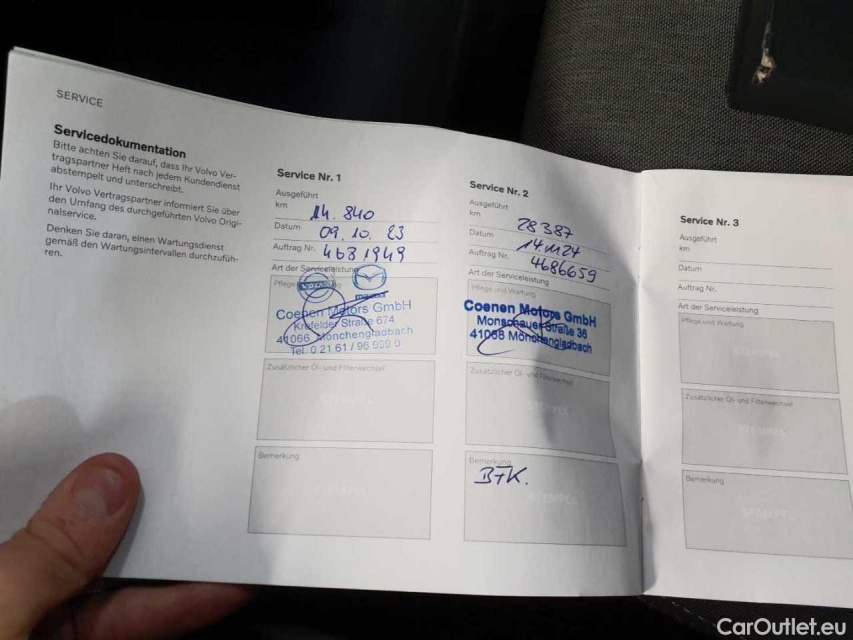 SERVICE
Servicedokumentation
Bitte achten Sie darauf, dass Ihr Volvo Ver-
tragspartner Heft nach jedem Kundendienst
abstempelt und unterschreibt.
Ihr Volvo Vertragspartner informiert Sie über
den Umfang des durchgeführten Volvo Origi-
nalservice.
Denken Sie daran, einen Wartungsdienst
gemäß den Wartungsintervallen durchzufüh-
ren.
Service Nr. 1
Ausgeführt
km 14.840
Datum 09.10.23
Auftrag Nr. 4631949
Art der Serviceleistung
Pflege und Wartung
mazda
Coenen Motors GmbH
Krefelder Straße 674
41066 Mönchengladbach
Tel. 0 21 61 / 96 999 0
Zusätzlicher Öl- und Filterwechsel
STEMPEL
Bemerkung
STEMPEL
Service Nr. 2
Ausgeführt
km 28387
Datum 141124
Auftrag Nr. 4686659
Art der Serviceleistung
Pflege und Wartung
Coenen Motors GmbH
Monschauer Straße 36
41068 Mönchengladbach
Zusätzlicher Öl- und Filterwechsel
STEMPEL
Bemerkung
BFK.
STEMPEL
Service Nr. 3
Ausgeführt
km
Datum
Auftrag Nr.
Art der Serviceleistung
Pflege und Wartung
STEMPEL
Zusätzlicher Öl- und Filterwechsel
STEMPEL
Bemerkung
STEMPEL
CarOutlet.eu